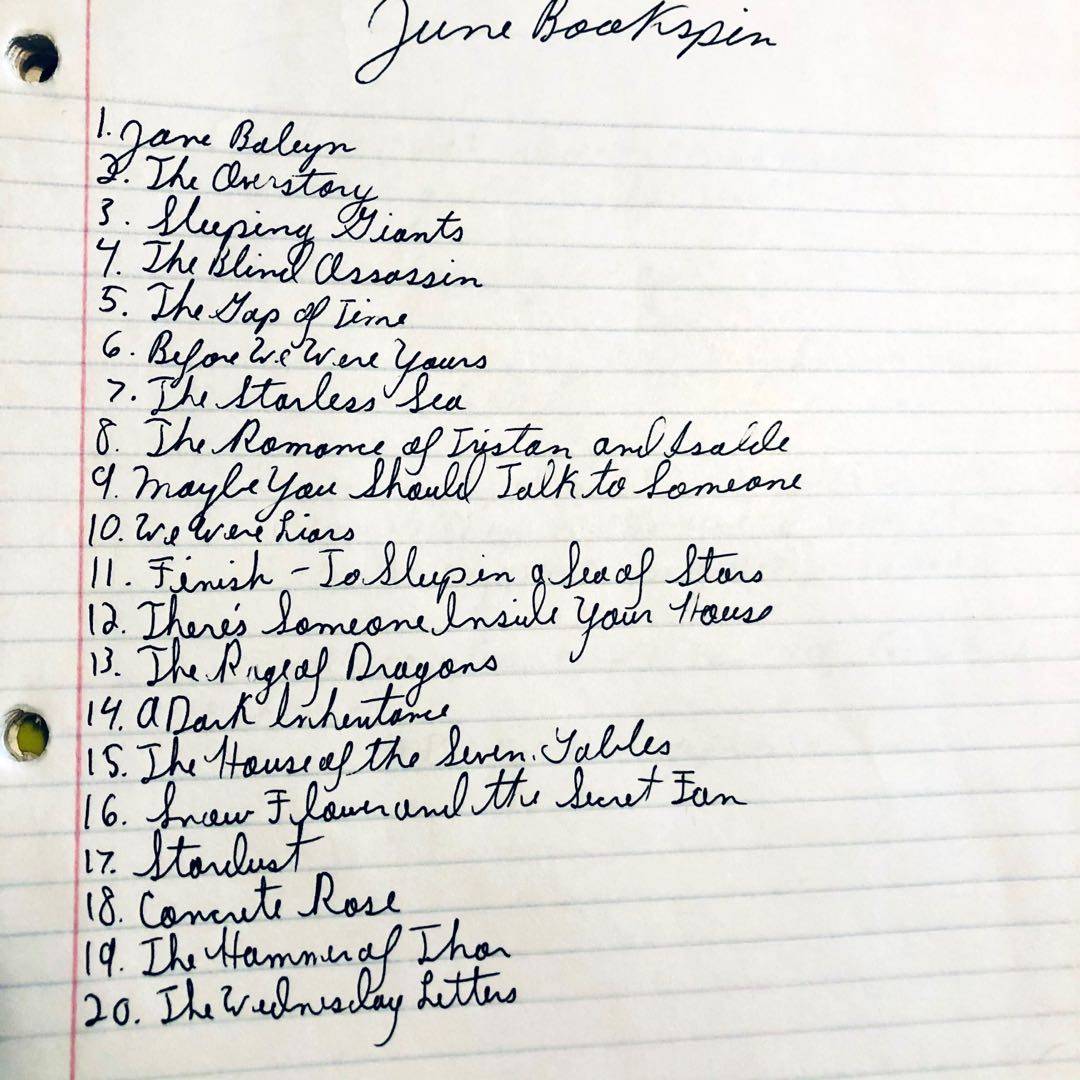 June Bookspin
1. Jane Boleyn
2. The Overstory
3. Sleeping Giants
4. The Blind Assassin
5. The Gap of Time
6. Before We Were Yours
7. The Starless Sea
8. The Romance of Tristan and Isolde
9. Maybe You Should Talk to Someone
10. We Were Liars
11. Finish - To Sleep in a Sea of Stars
12. There's Someone Inside Your House
13. The Rage of Dragons
14. A Dark Inheritance
15. The House of the Seven Gables
16. Snow Flower and the Secret Fan
17. Stardust
18. Concrete Rose
19. The Hammer of Thor
20. The Wednesday Letters